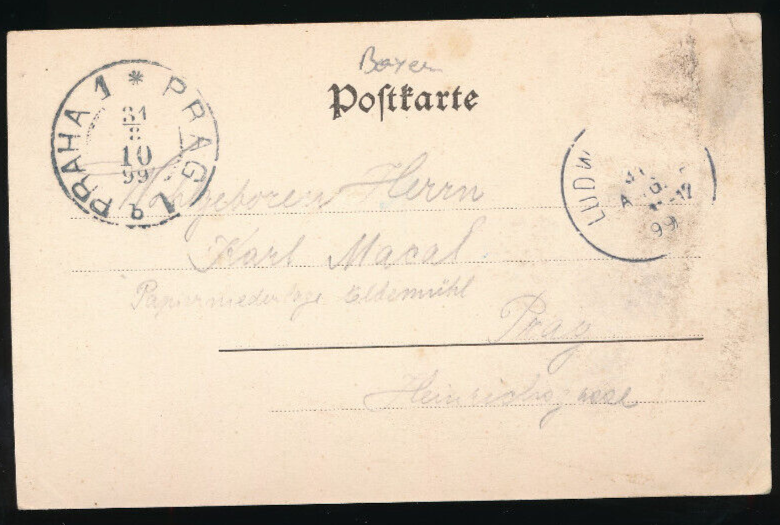 Bayern
Postkarte
PRAHA 1 * PRAG 1
31
8
10
99
b
LUDW
AUG.
99
Wohlgeboren Herrn
Karl Macal.
Papierniederlage
Prag